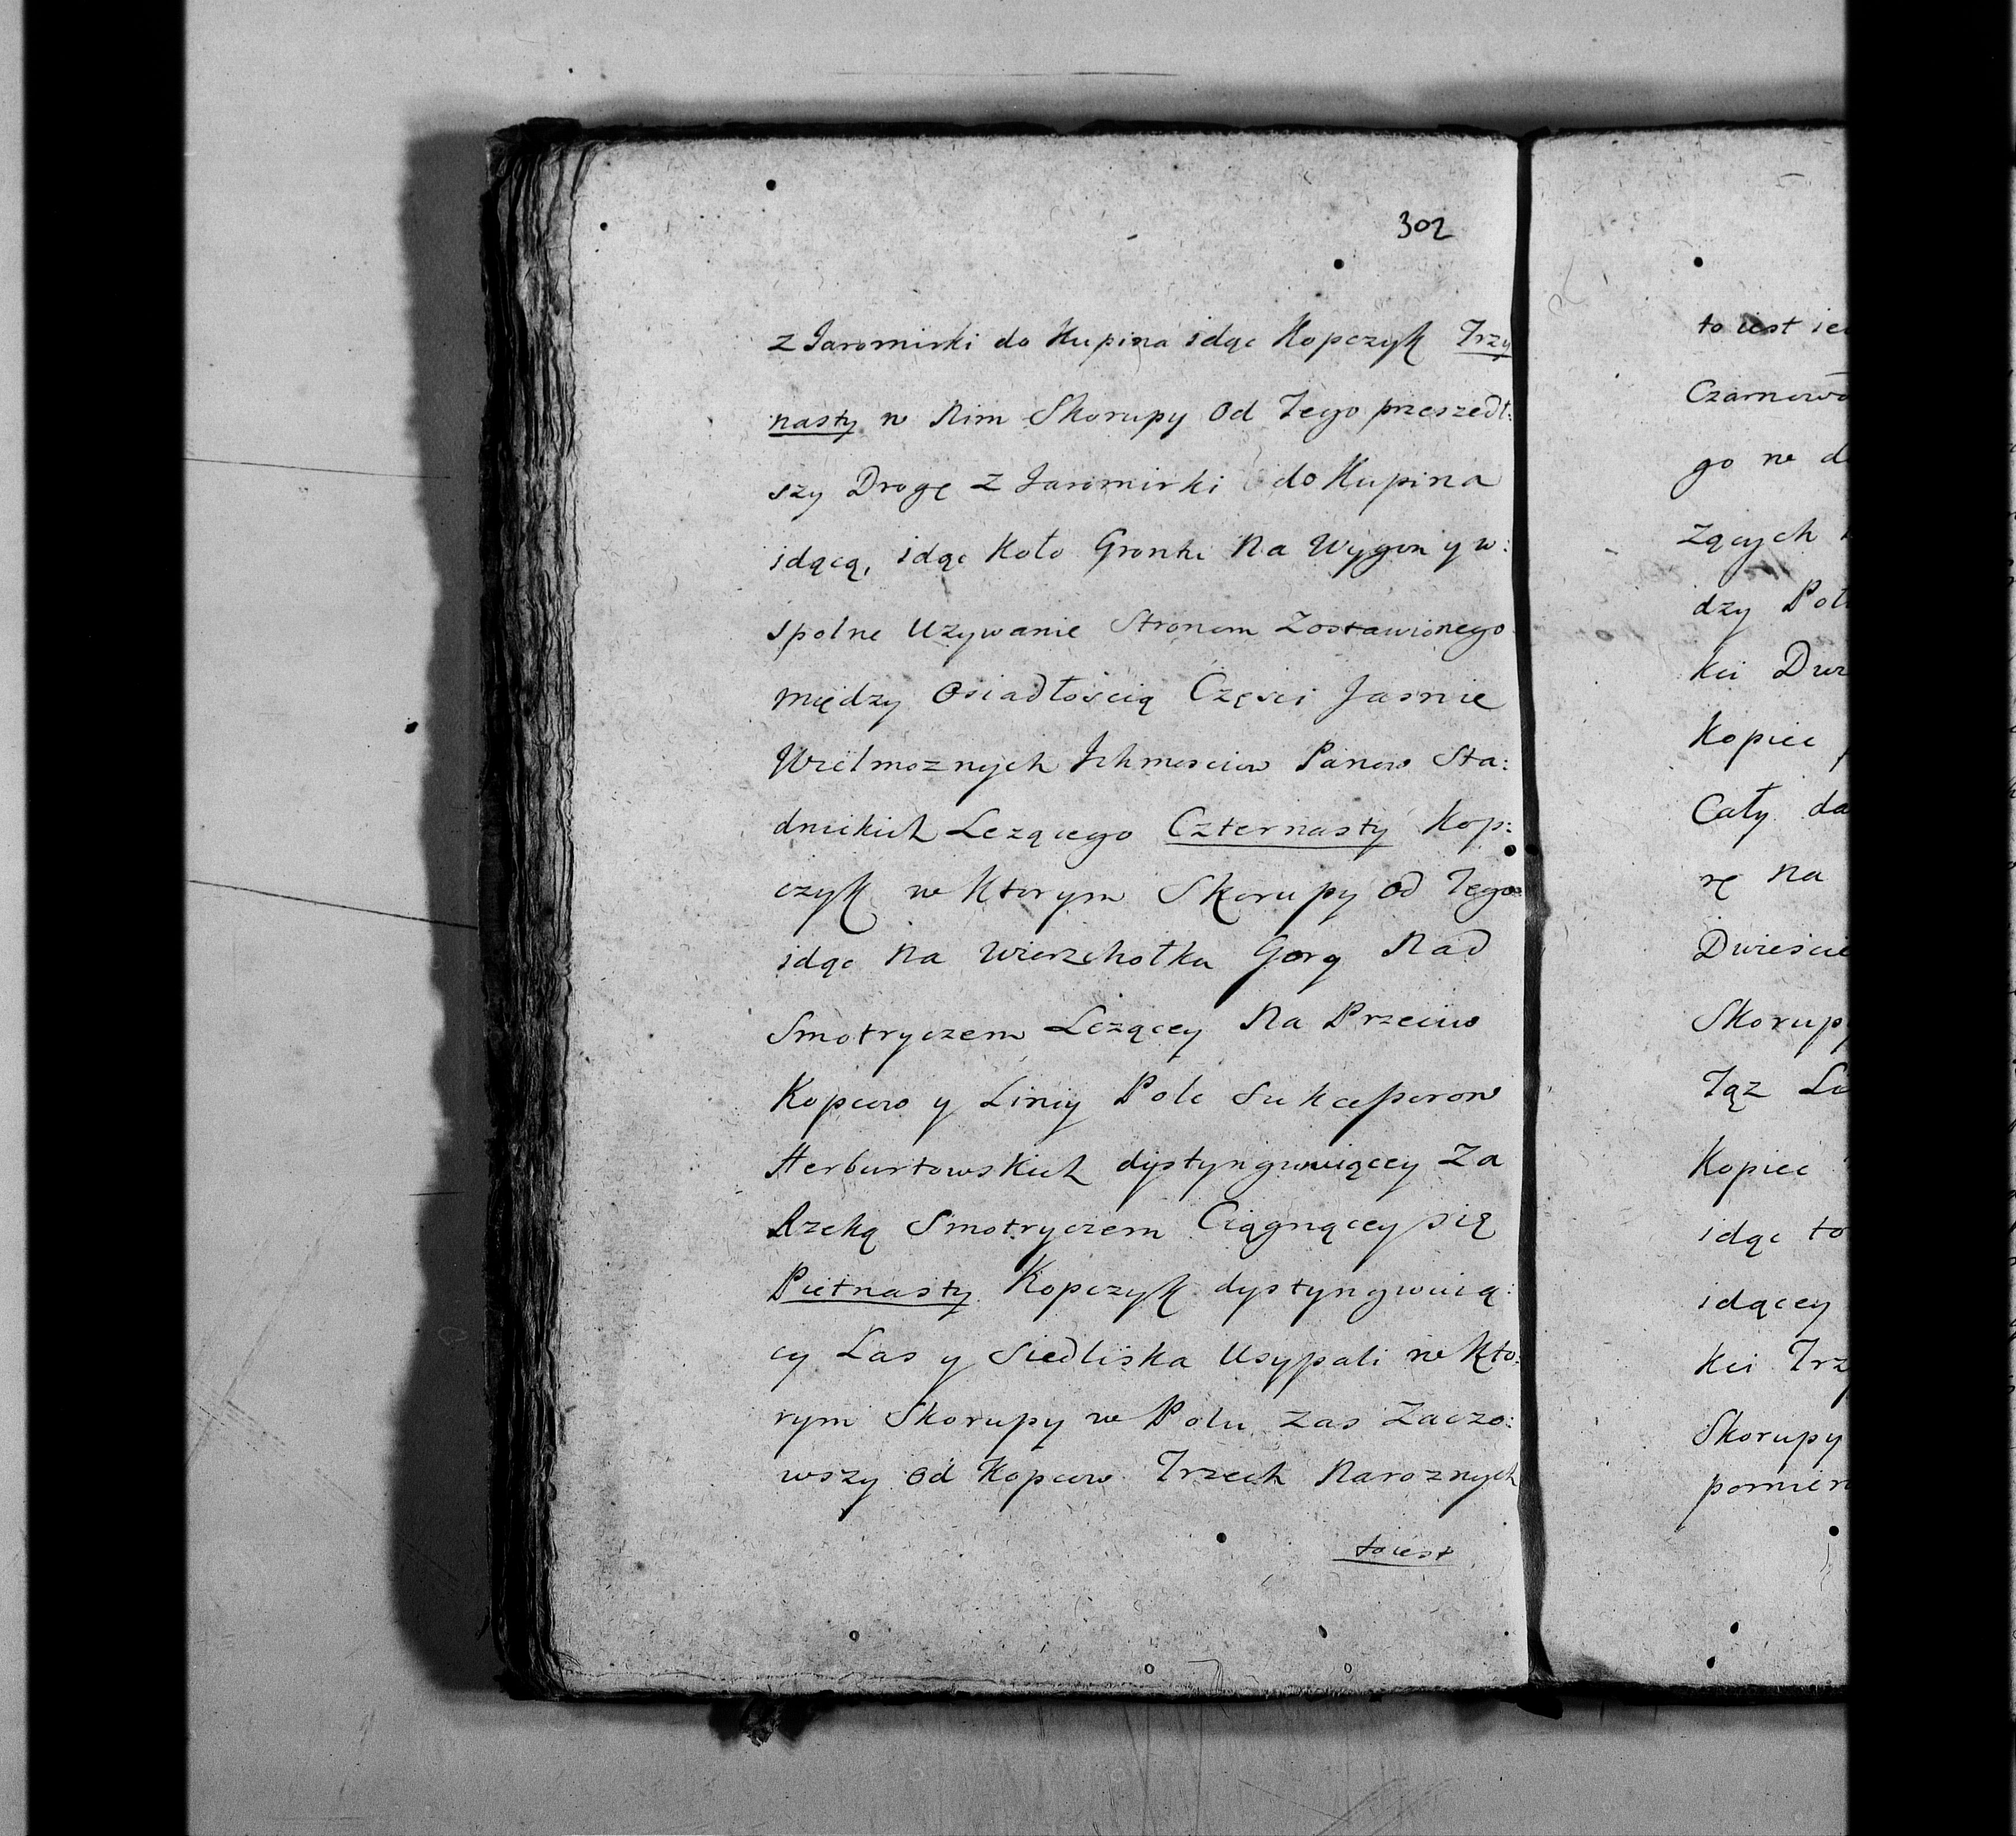 302
z Jaromirki do Kupina idąc Kopczyk Trzy
nasty w Nim Skorupy Od Tego przeszedł:
szy Drogę z Jaromirki do Kupina
idącą, idąc Koło Gronki Na Wygon y w:
spolne Uzywanie Stronom Zostawionego
między Osiadłością Częsci Jasnie
Wielmoznych Ichmosciow Panow Sta:
dnickich Lezącego Czternasty Kop:
czyk w Ktorym Skorupy od Tego
idąc Na Wierzchołku Gory Nad
Smotryczem Lezącey Na Przeciw
Kopcow y Liniy Pole Sukcessorow
Herburtowskich dystyngwuiącey Za
Rzeką Smotryczem Ciągnącey się
Pietnasty Kopczyk dystyngwuią:
cy Las y Siedliska Usypali w Kto:
rym Skorupy w Polu zas Zaczo:
wszy Od Kopcow Trzech Naroznych
to iest
to iest
Czarnowo
go w
zących
dzy
Kopiec
Cały da
rę Na
Dwieście
Skorupy
Tąz
Kopiec
idąc to
idącey
Skorupy